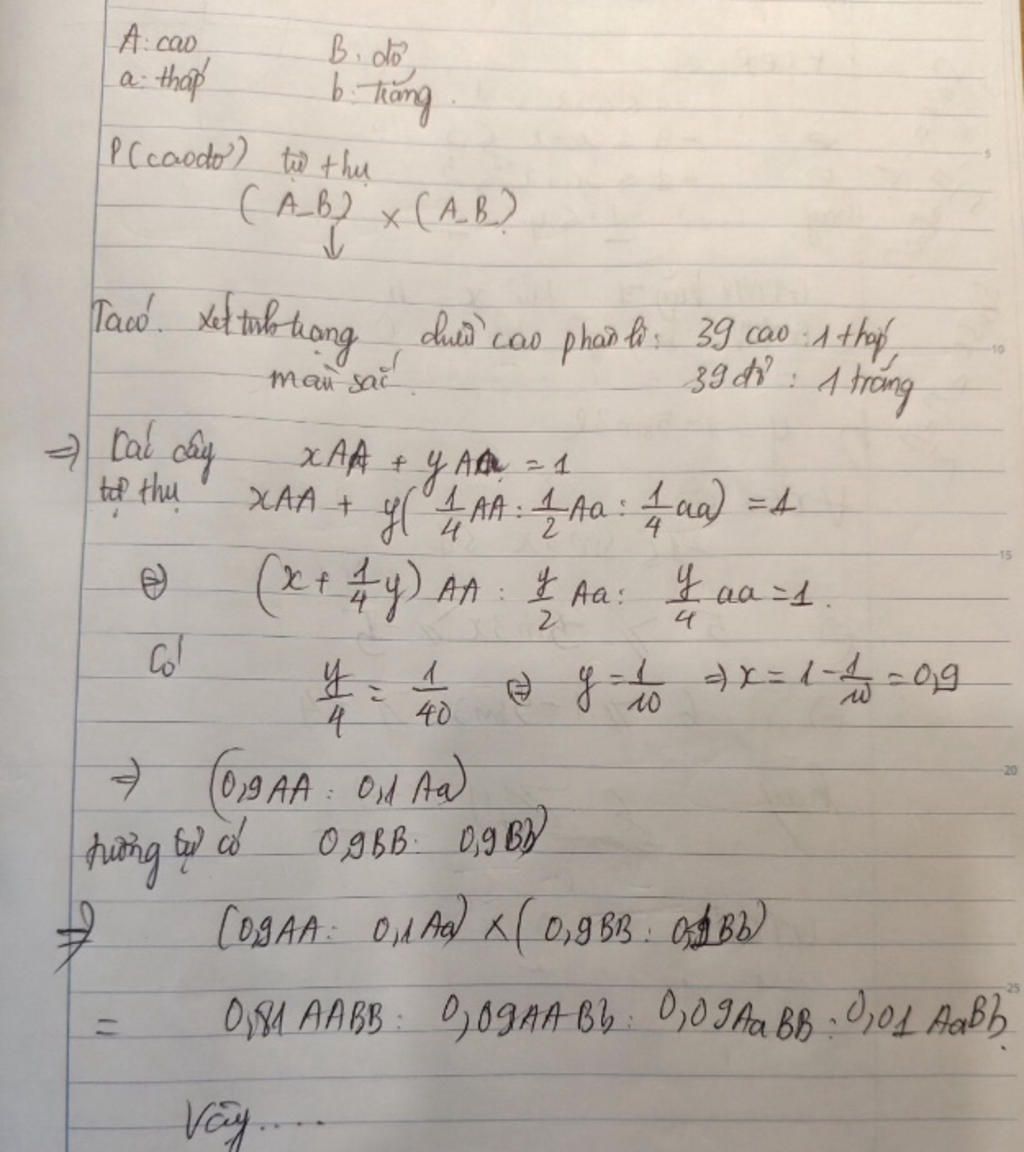 A: cao B: đỏ
a: thấp b: trắng.
P(cao đỏ) tự thụ
(A_B_) × (A_B_)
↓
Ta có. xét tính trạng chiều cao phân li: 39 cao : 1 thấp
màu sắc. 39 đỏ : 1 trắng
⇒ Các cây xAA + yAa = 1
tự thụ xAA + y(1/4 AA : 1/2 Aa : 1/4 aa) = 1
⇔ (x + 1/4 y) AA : y/2 Aa : y/4 aa = 1.
Có y/4 = 1/40 ⇔ y = 1/10 ⇒ x = 1 - 1/10 = 0,9
⇒ (0,9AA : 0,1 Aa)
tương tự có 0,9BB : 0,9Bb
⇒ (0,9AA : 0,1Aa) × (0,9BB : 0,1Bb)
= 0,81 AABB : 0,09AABb : 0,09AaBB : 0,01 AaBb.
Vậy.....
5
10
15
20
25